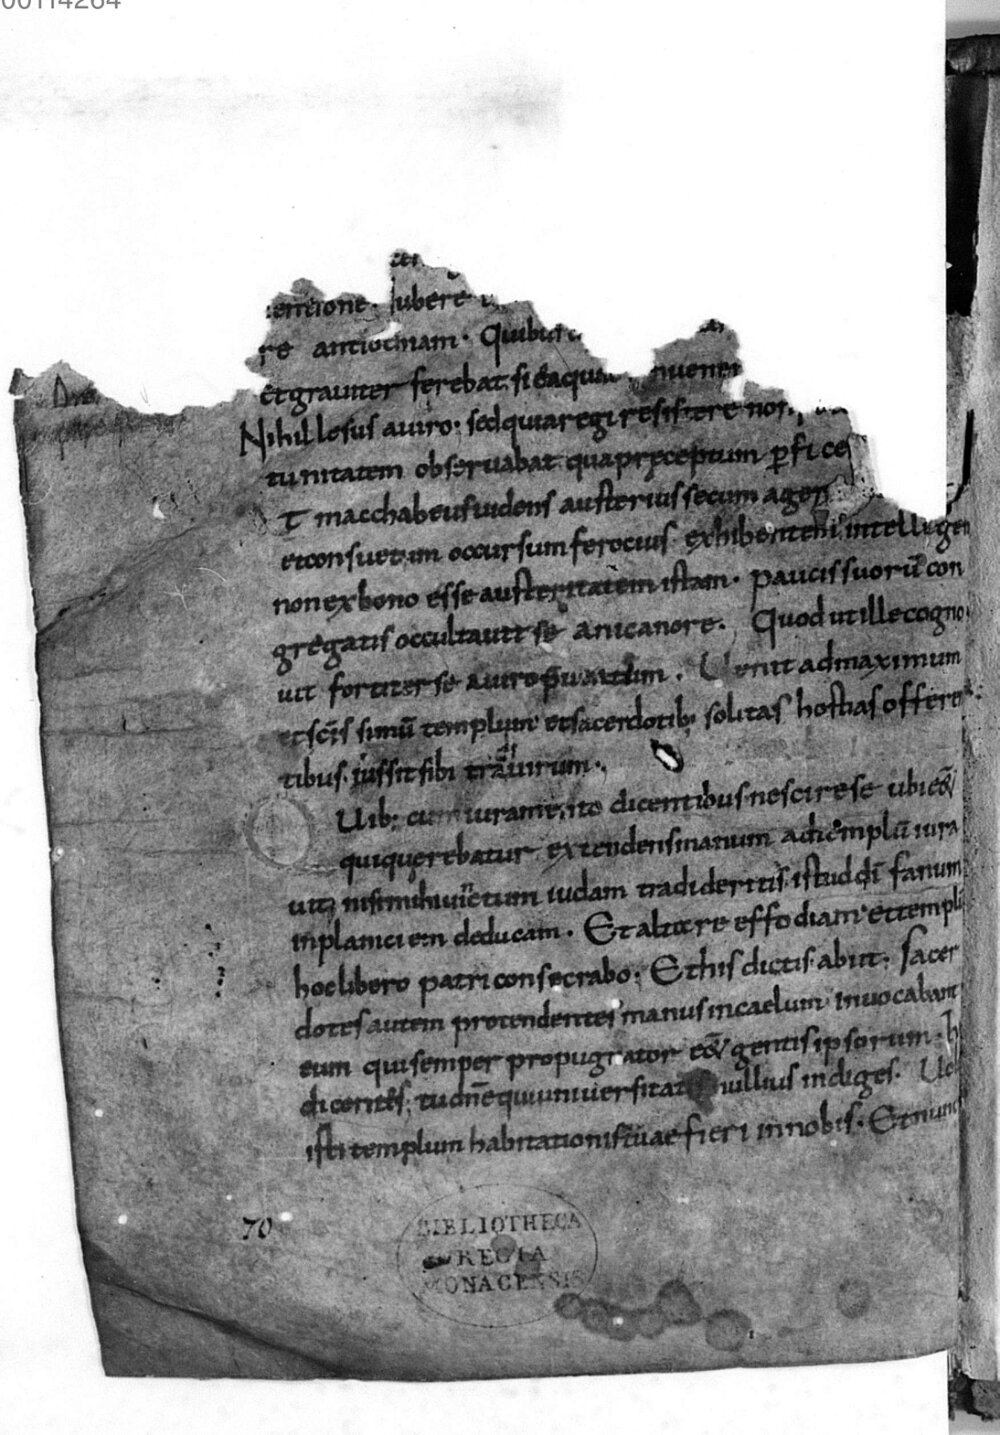 00114264
entione. Iubere
re antiochiam. Quibus
et grauiter ferebat si ea quae nuener
Nihil lesus a uiro. sed quia regi resistere non
tunitatem obseruabat qua pręceptum ꝑfice
T macchabeus uidens austerius secum agen
et consuetum occursum ferocius exhibentem intellegen
non ex bono esse austeritatem istam. paucis suorū con
gregatis occultauit se a nicanore. Quod ut ille cogno
uit fortiter se a uiro p̄uentum. Uenit ad maximum
et sc̄īs simū templum et sacerdotib; solitas hostias offeren
tibus. iussit sibi tradi uirum.
Uib; cum iuramento dicentibus nescire se ubi eēt
qui querebatur extendens manum ad templū iura
uit nisi mihi uinctum iudam tradideritis. istud dī fanum
in planiciem deducam. Et altare effodiam et templ
hoc libero patri consecrabo. Et his dictis abiit. Sacer
dotes autem protendentes manus in caelum inuocabant
eum qui semper propugnator eēt gentis ipsorum. h
dicentes. tu dn̄e qui uniuersitatis nullius indiges. Uo
isti templum habitationis tuae fieri in nobis. Et nunc
70
BIBLIOTHECA
REGIA
MONACENSIS